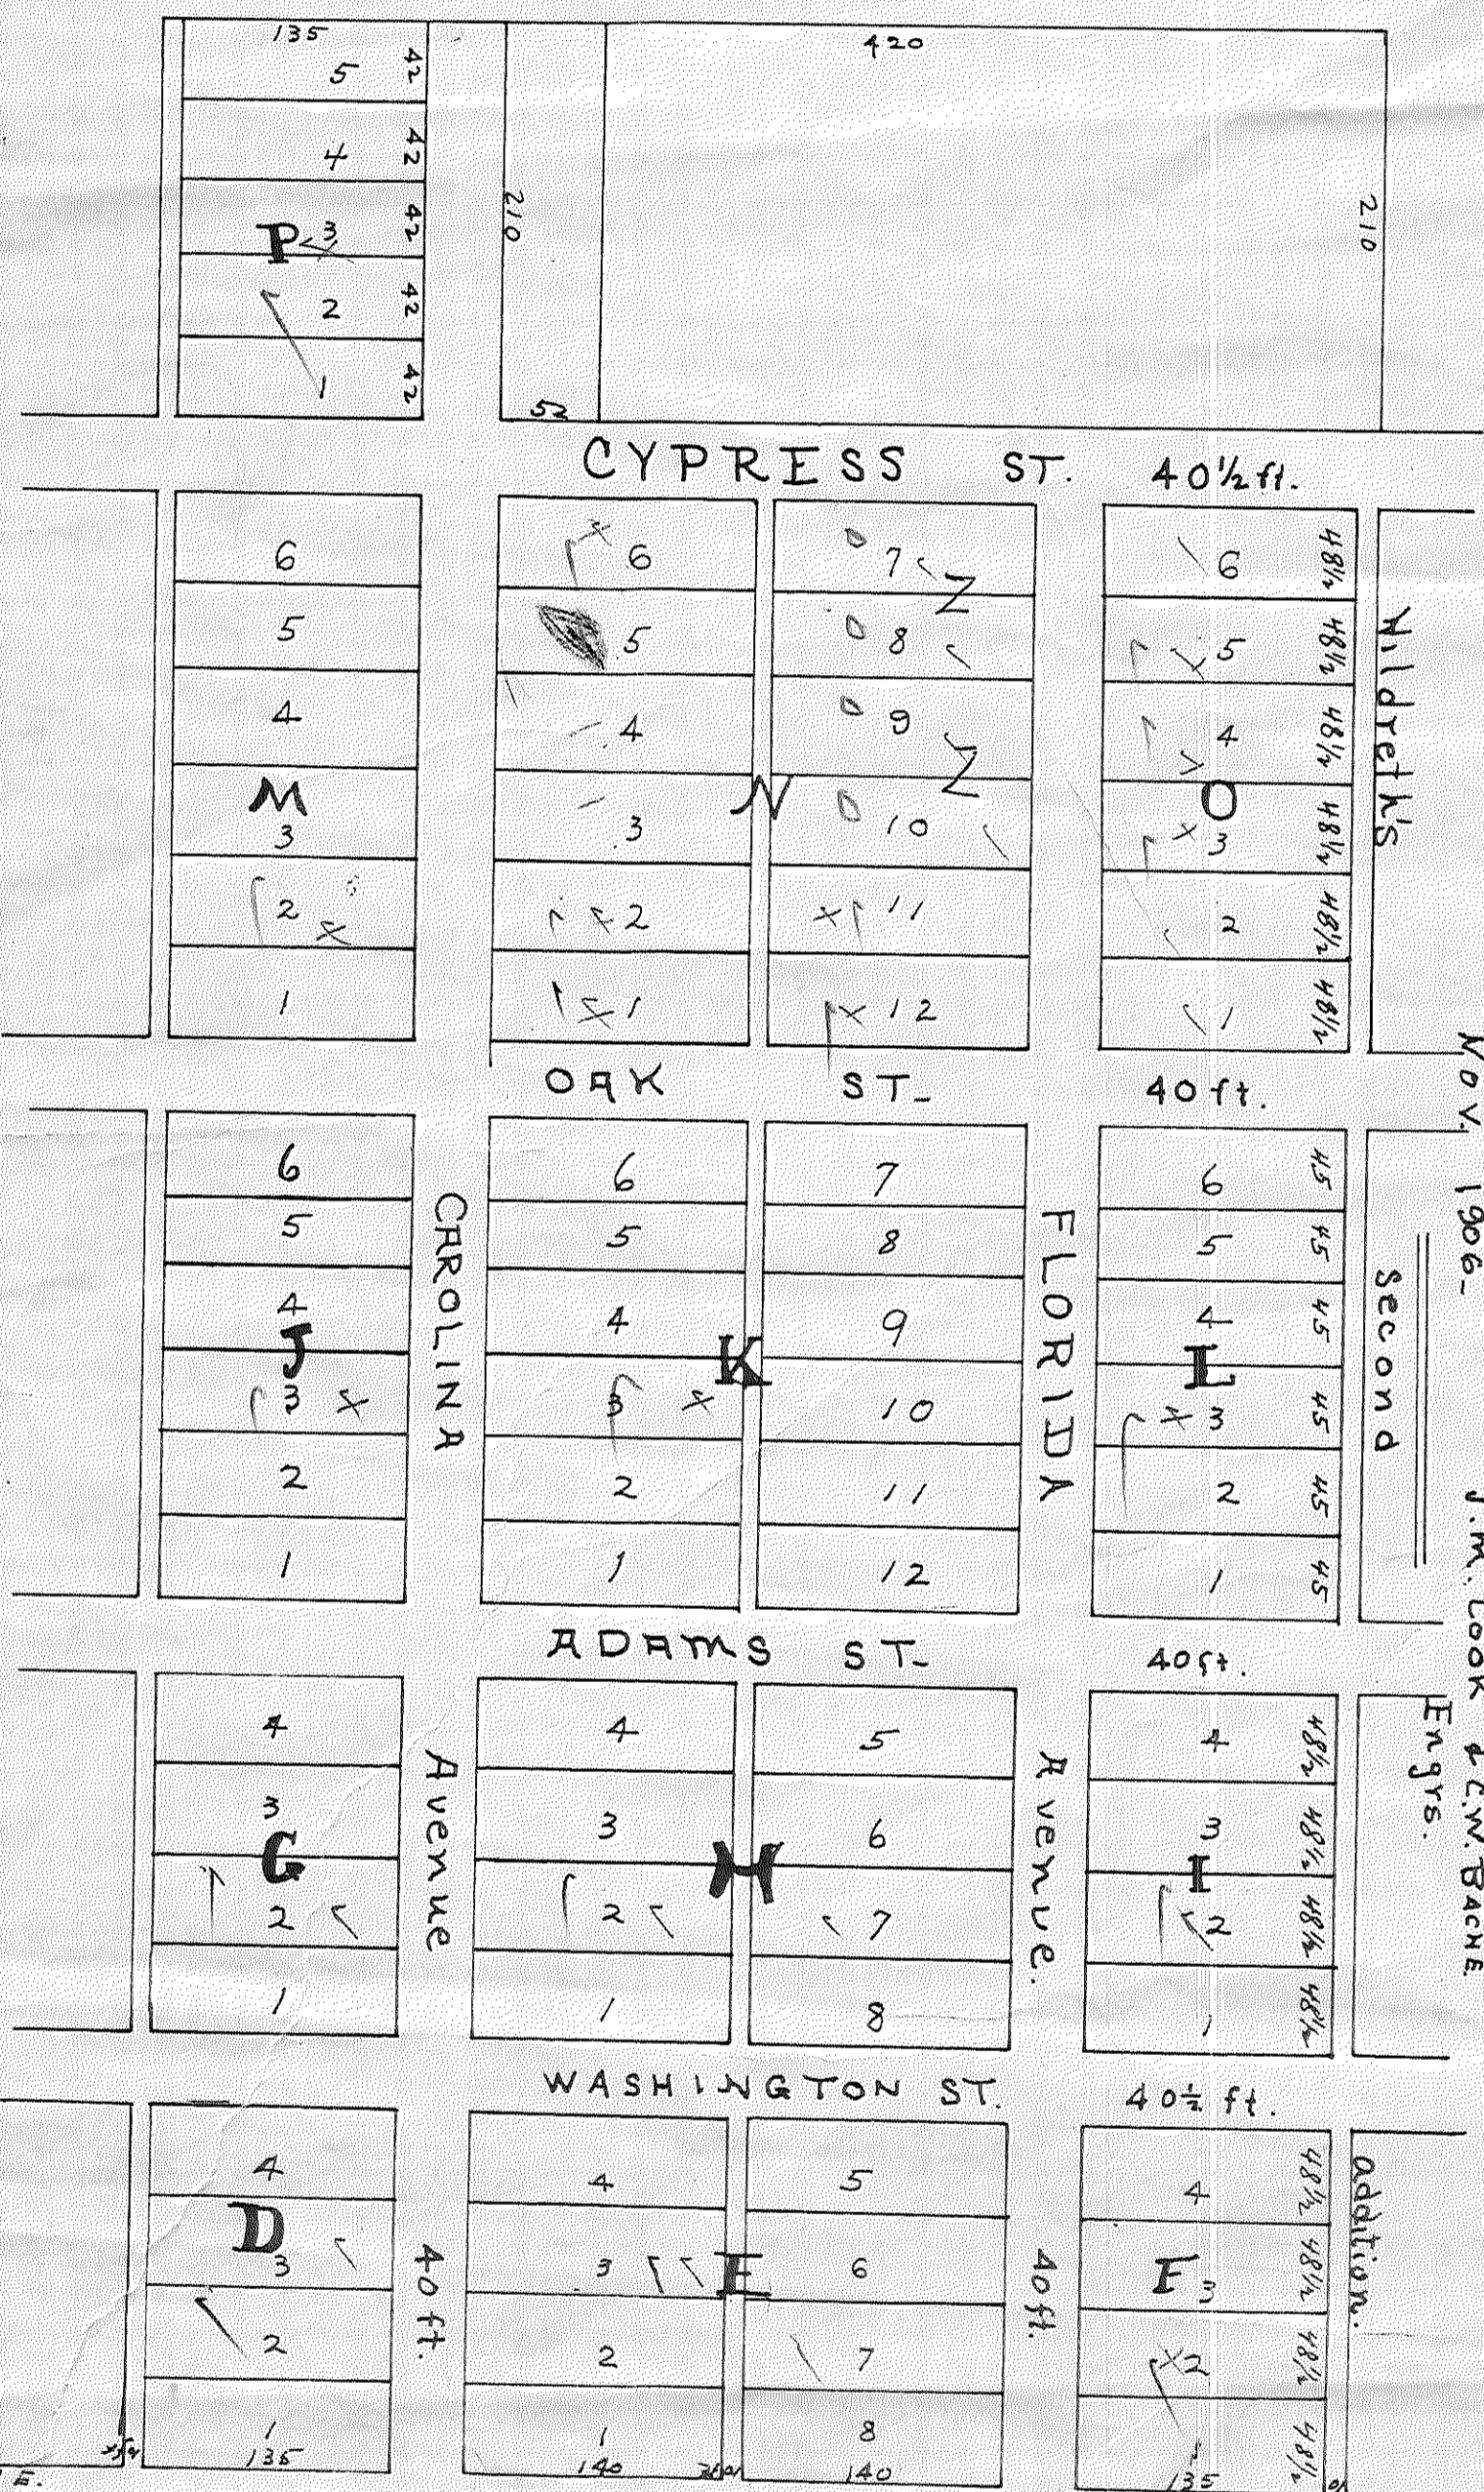 135
5 42
4 42
P 3 42
2 42
1 42
420
210
210
52
CYPRESS ST. 40½ ft.
6
5
4
M
3
2 x
1
x 6
5
4
3
x 2
x 1
N
0 7 Z
0 8
0 9 Z
0 10
x 11
x 12
6 48½
5 48½
4 48½
O
x 3 48½
2 48½
1 48½
Hildreth's
OAK ST- 40 ft.
6
5
4
J
3 x
2
1
CAROLINA
6
5
4
3 x
2
1
K
7
8
9
10
11
12
FLORIDA
6 45
5 45
4 45
L
x 3 45
2 45
1 45
Second
Nov. 1906-
J.M. LOOK & C.W. BACHE.
Engrs.
ADAMS ST- 40 ft.
4
3
G
2
1
Avenue
4
3
2
1
H
5
6
7
8
Avenue.
4 48½
3 48½
I
2 48½
1 48½
WASHINGTON ST. 40½ ft.
4
D
3
2
1
135
40 ft.
4
3
2
1
140
E
5
6
7
8
140
40 ft.
4 48½
F 3 48½
x2 48½
1 48½
135
addition.
E.